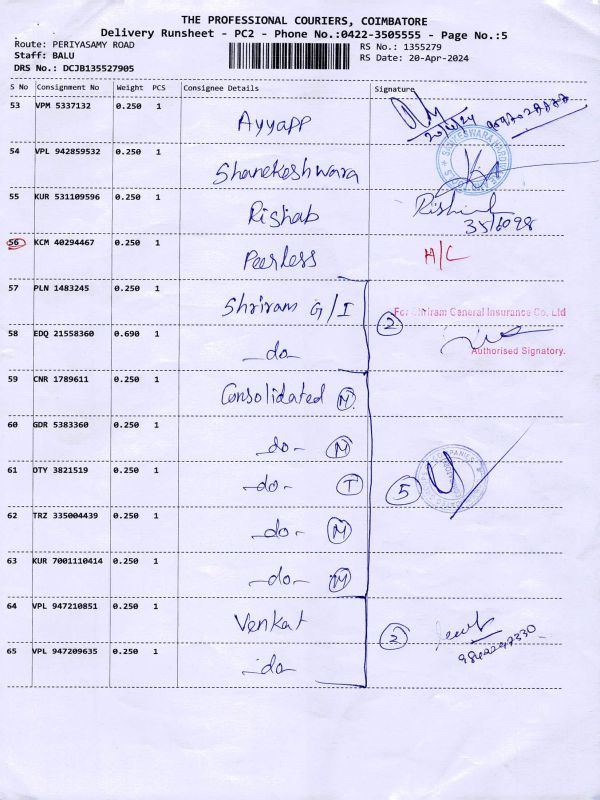 THE PROFESSIONAL COURIERS, COIMBATORE
Delivery Runsheet - PC2 - Phone No.:0422-3505555 - Page No.:5
Route: PERIYASAMY ROAD RS No.: 1355279
Staff: BALU RS Date: 20-Apr-2024
DRS No.: DCJB135527905
S No Consignment No Weight PCS Consignee Details Signature
53 VPM 5337132 0.250 1 Ayyapp 20/4/24
54 VPL 942859532 0.250 1 Shanekeshwara
55 KUR 531109596 0.250 1 Rishab
56 KCM 40294467 0.250 1 Peerless A/C
57 PLN 1483245 0.250 1 Shriram G/I For Shriram General Insurance Co. Ltd
58 EDQ 21558360 0.690 1 -do- 2 Authorised Signatory.
59 CNR 1789611 0.250 1 Consolidated M
60 GDR 5383360 0.250 1 -do- M
61 OTY 3821519 0.250 1 -do- T 5
62 TRZ 335004439 0.250 1 -do- M
63 KUR 7001110414 0.250 1 -do- M
64 VPL 947210851 0.250 1 Venkat 2
65 VPL 947209635 0.250 1 -do-